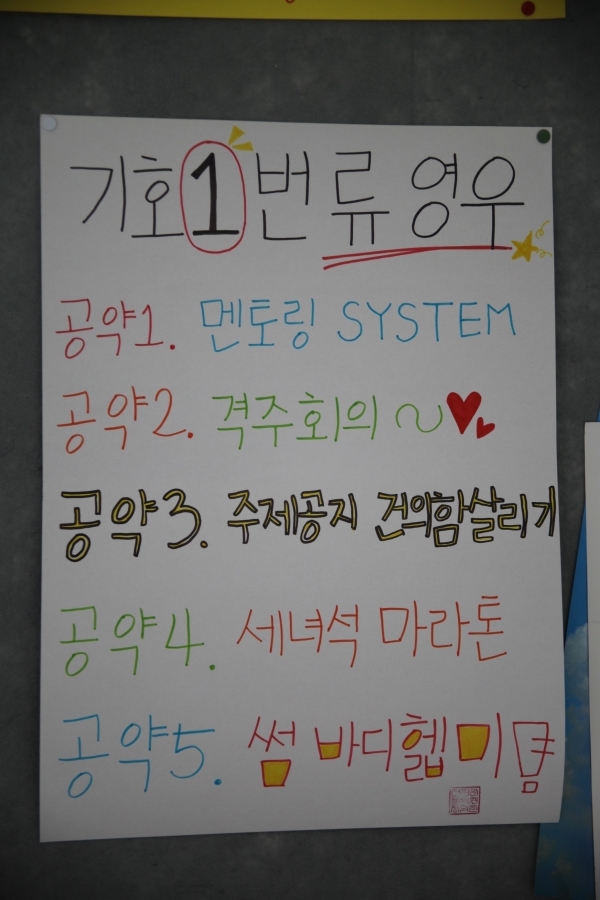 기호 1번 류영우
공약1. 멘토링 SYSTEM
공약2. 격주회의 ~
공약3. 주제공지 건의함살리기
공약4. 세녀석 마라톤
공약5. 썸바디헬미!